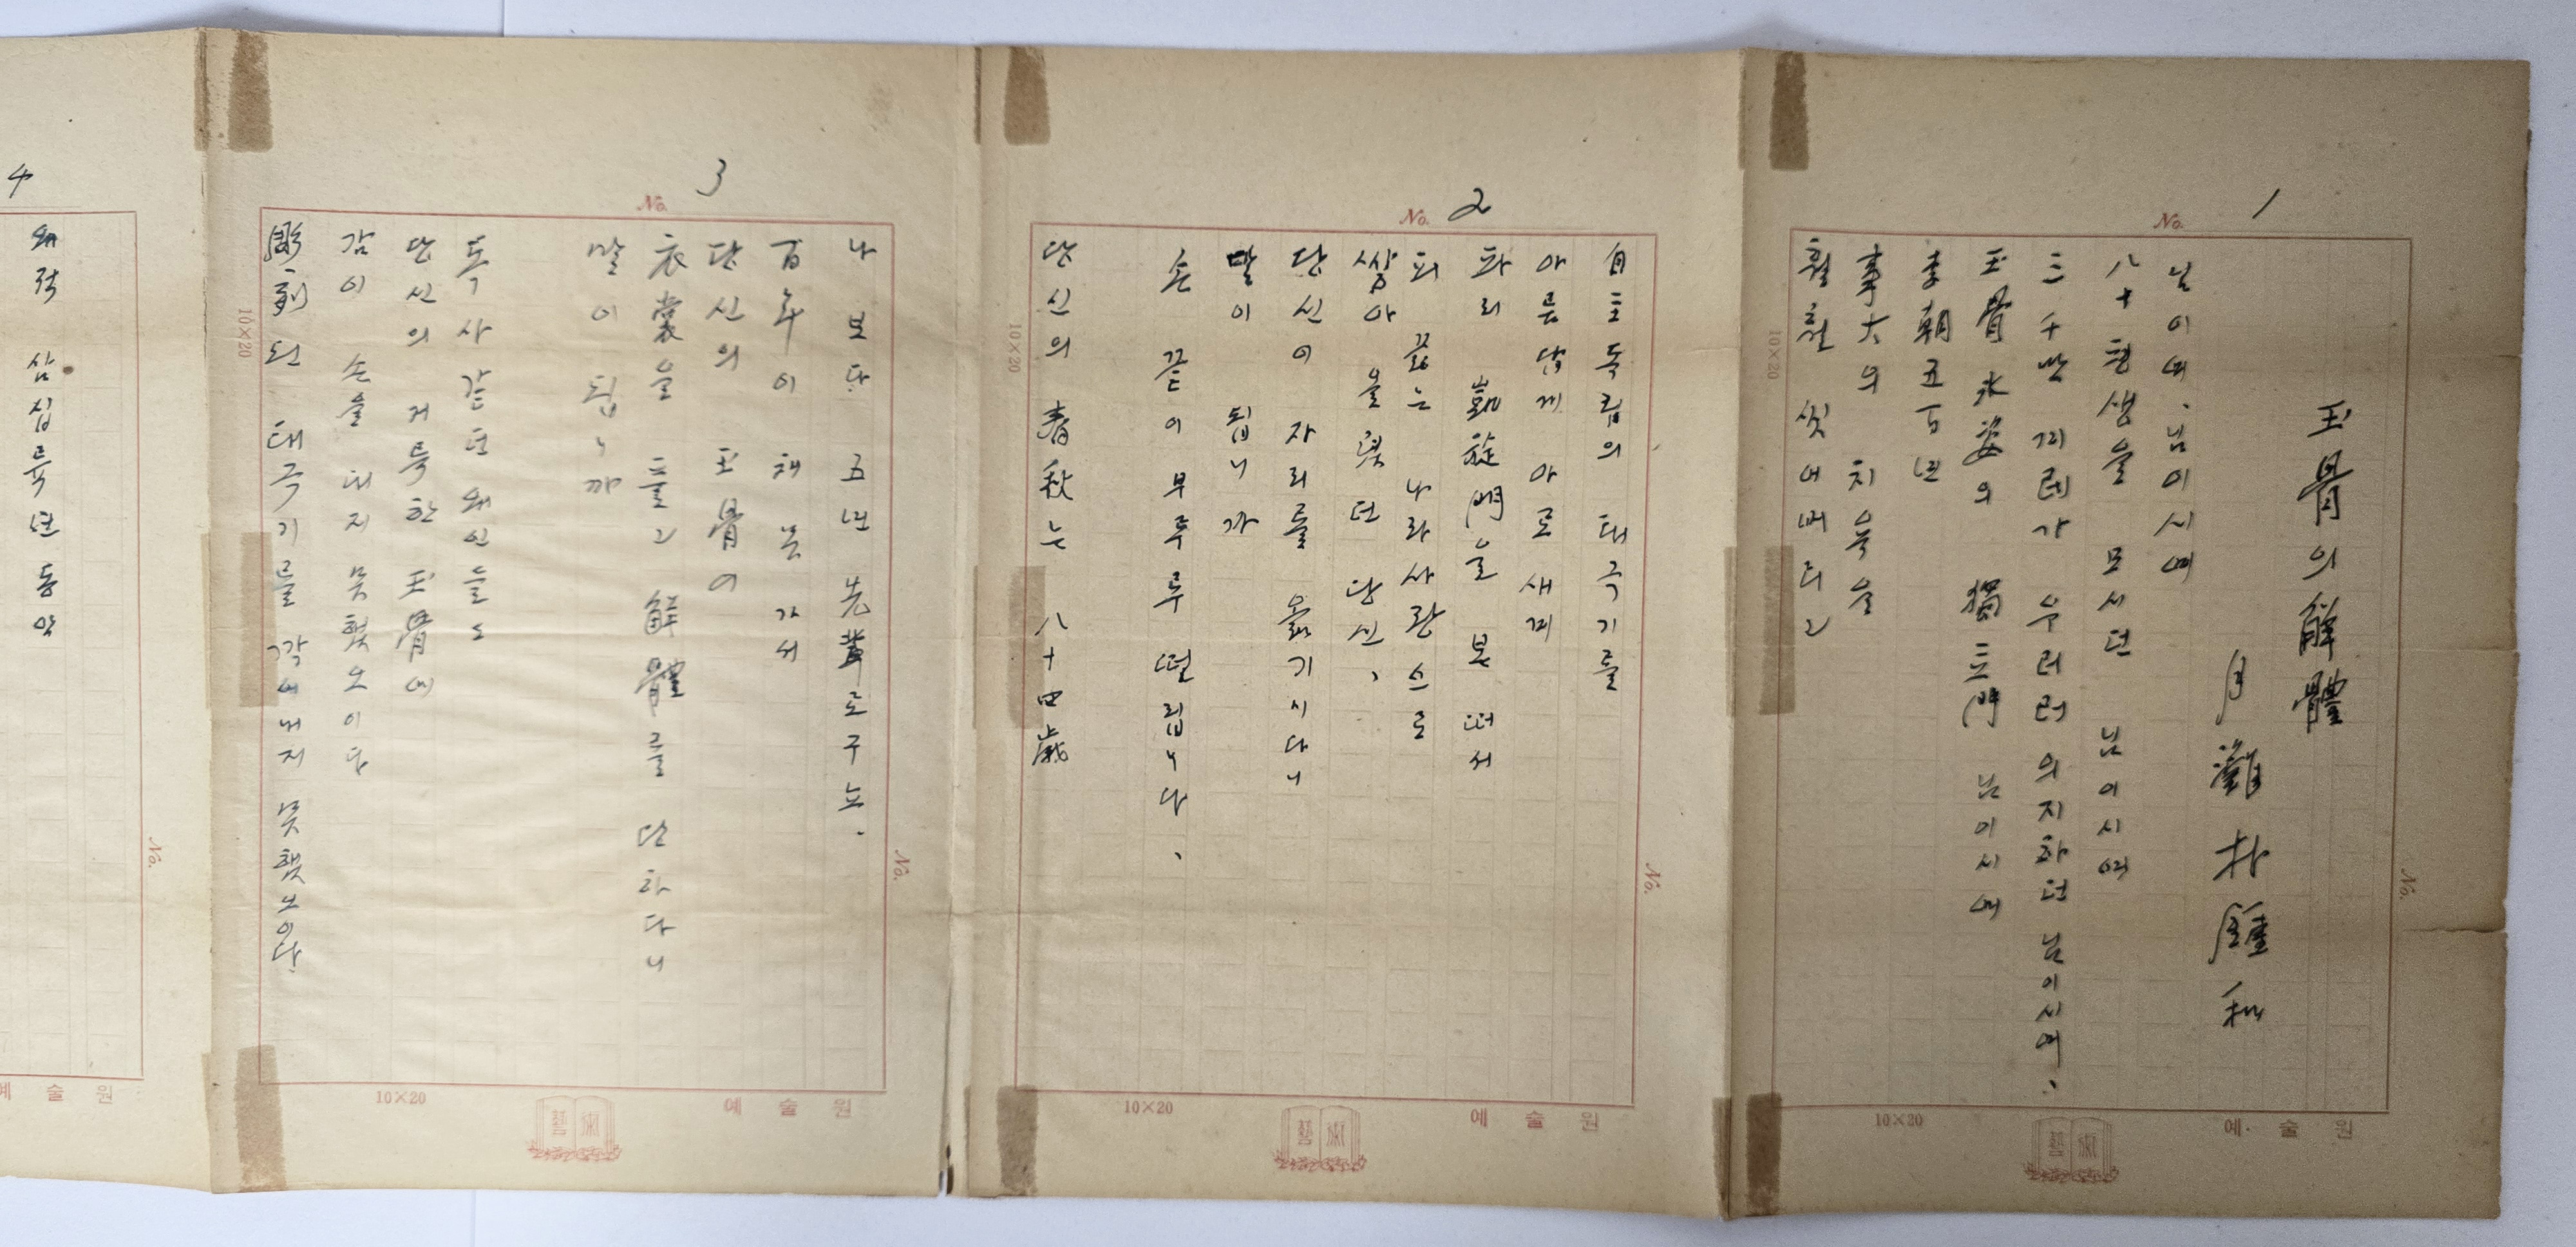 1
No.
玉骨의 解體
月灘 朴鍾和
님이여、님이시여
八十평생을 모시던 님이시여
三千만 겨레가 우러러 의지하던 님이시여、
玉骨氷姿의 獨立門 님이시여
李朝五百년
事大의 치욕을
훨훨 씻어버리고
No.
10×20
10×20
예술원
藝術
2
No.
自主독립의 태극기를
아름답게 아로새겨
파리 凱旋門을 본떠서
피 끓는 나라사랑으로
쌓아 올렸던 당신、
당신이 자리를 옮기시다니
말이 됩니까
손 끝이 부루루 떨립니다、
당신의 春秋는 八十四歲
No.
10×20
10×20
예술원
藝術
3
No.
나보다 五년 先輩로구뇨.
百年이 채 못가서
당신의 玉骨이
衣裳을 들고 解體를 단하다니
말이 됩니까
독사같던 왜인들도
당신의 거룩한 玉骨에
감이 손을 대지 못했오이다
彫刻된 태극기를 깍어내지 못했오이다.
No.
10×20
10×20
예술원
藝術
4
왜적 삼십륙년동안
No.
예술원